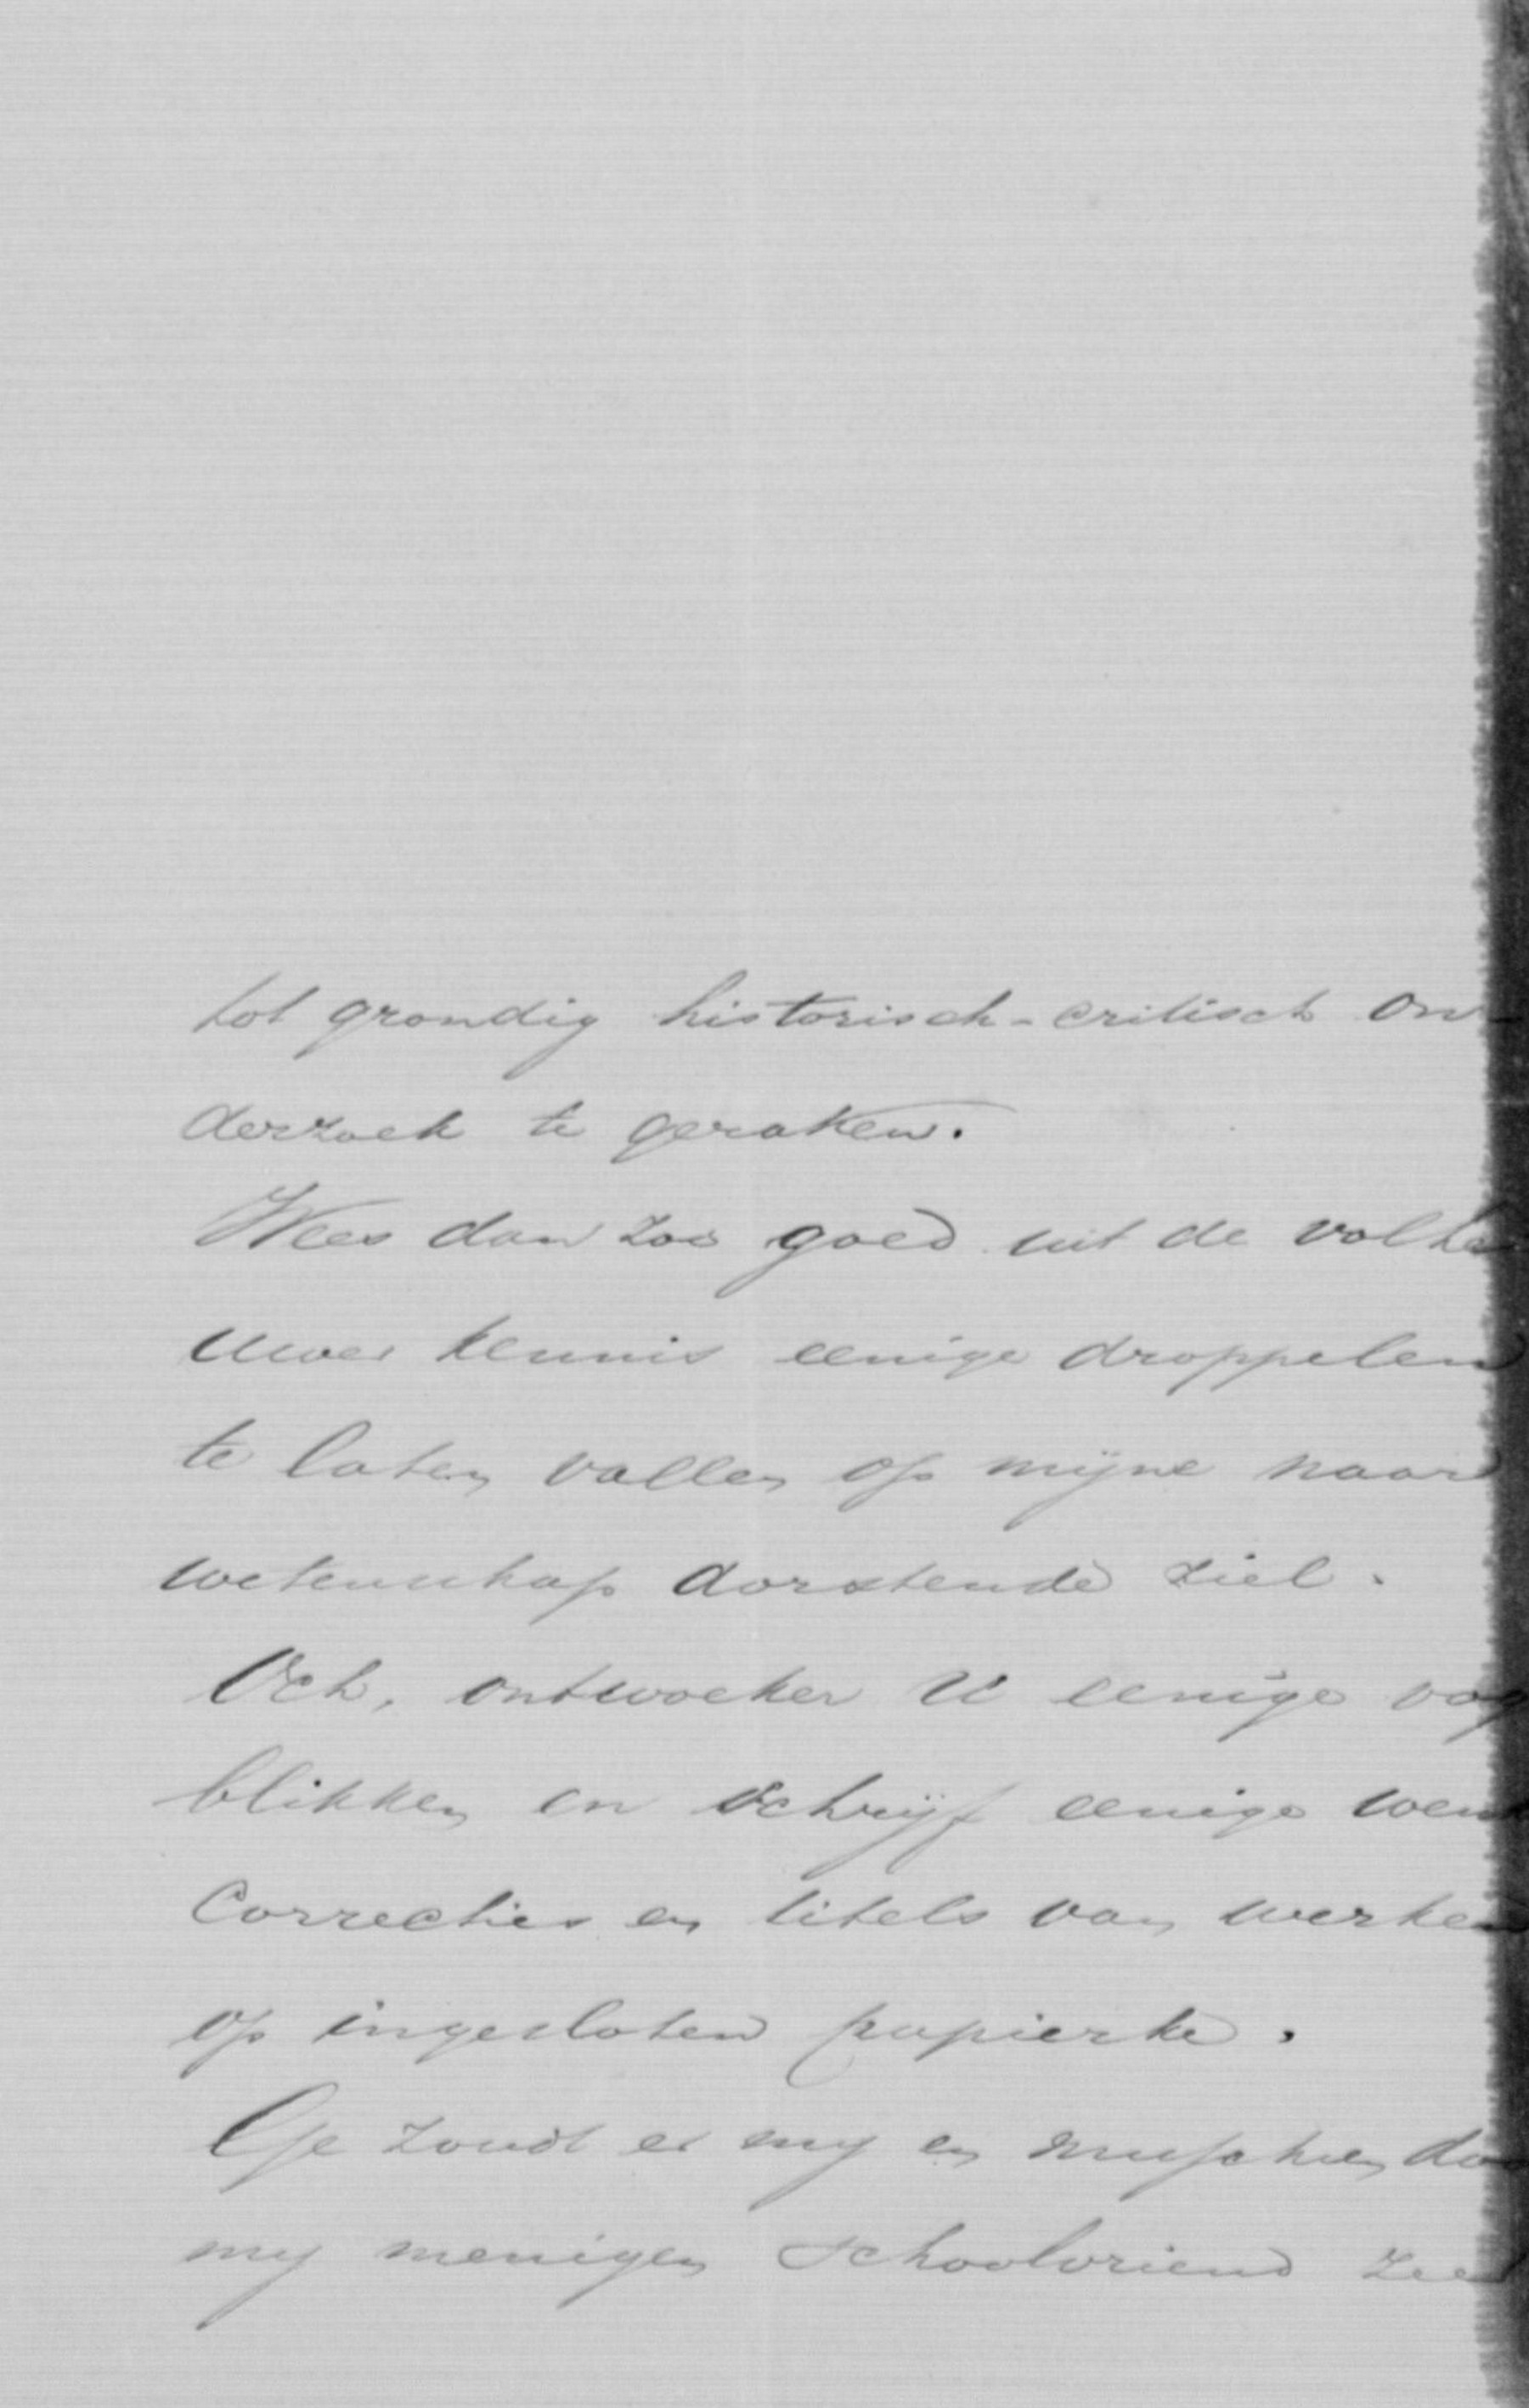 tot grondig historisch-critisch on-
derzoek te geraken.
Wees dan zoo goed uit de
uwer kennis eenige droppelen
te laten vallen op mijne naar
wetenschap dorstende ziel.
Och, ontwoeker U eenige oog
blikken en schrijf eenige
correcties en titels van werken
op ingesloten papierke.
Ge zoudt er my en misschien
my menigen schoolvriend zee